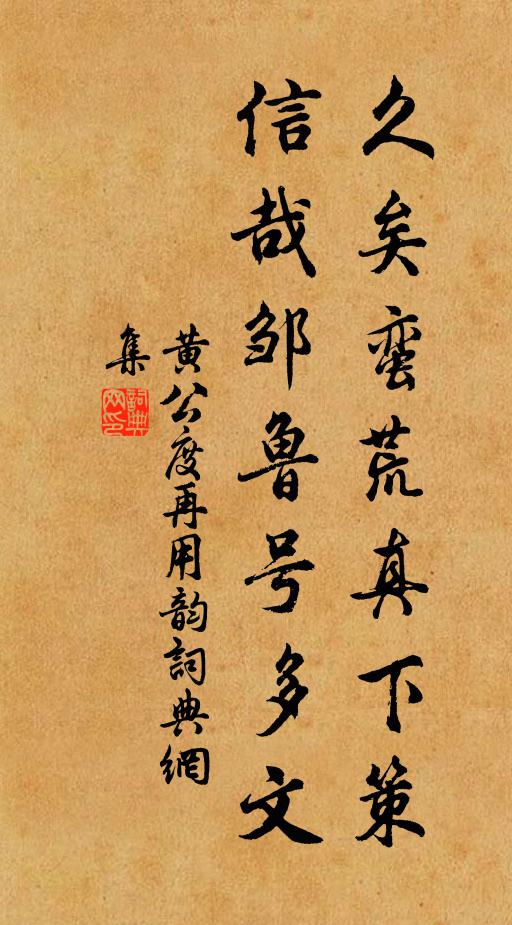 久矣蛮荒真下策
信哉邹鲁号多文
黄公度再用韵詞典網
集
詞典
网印